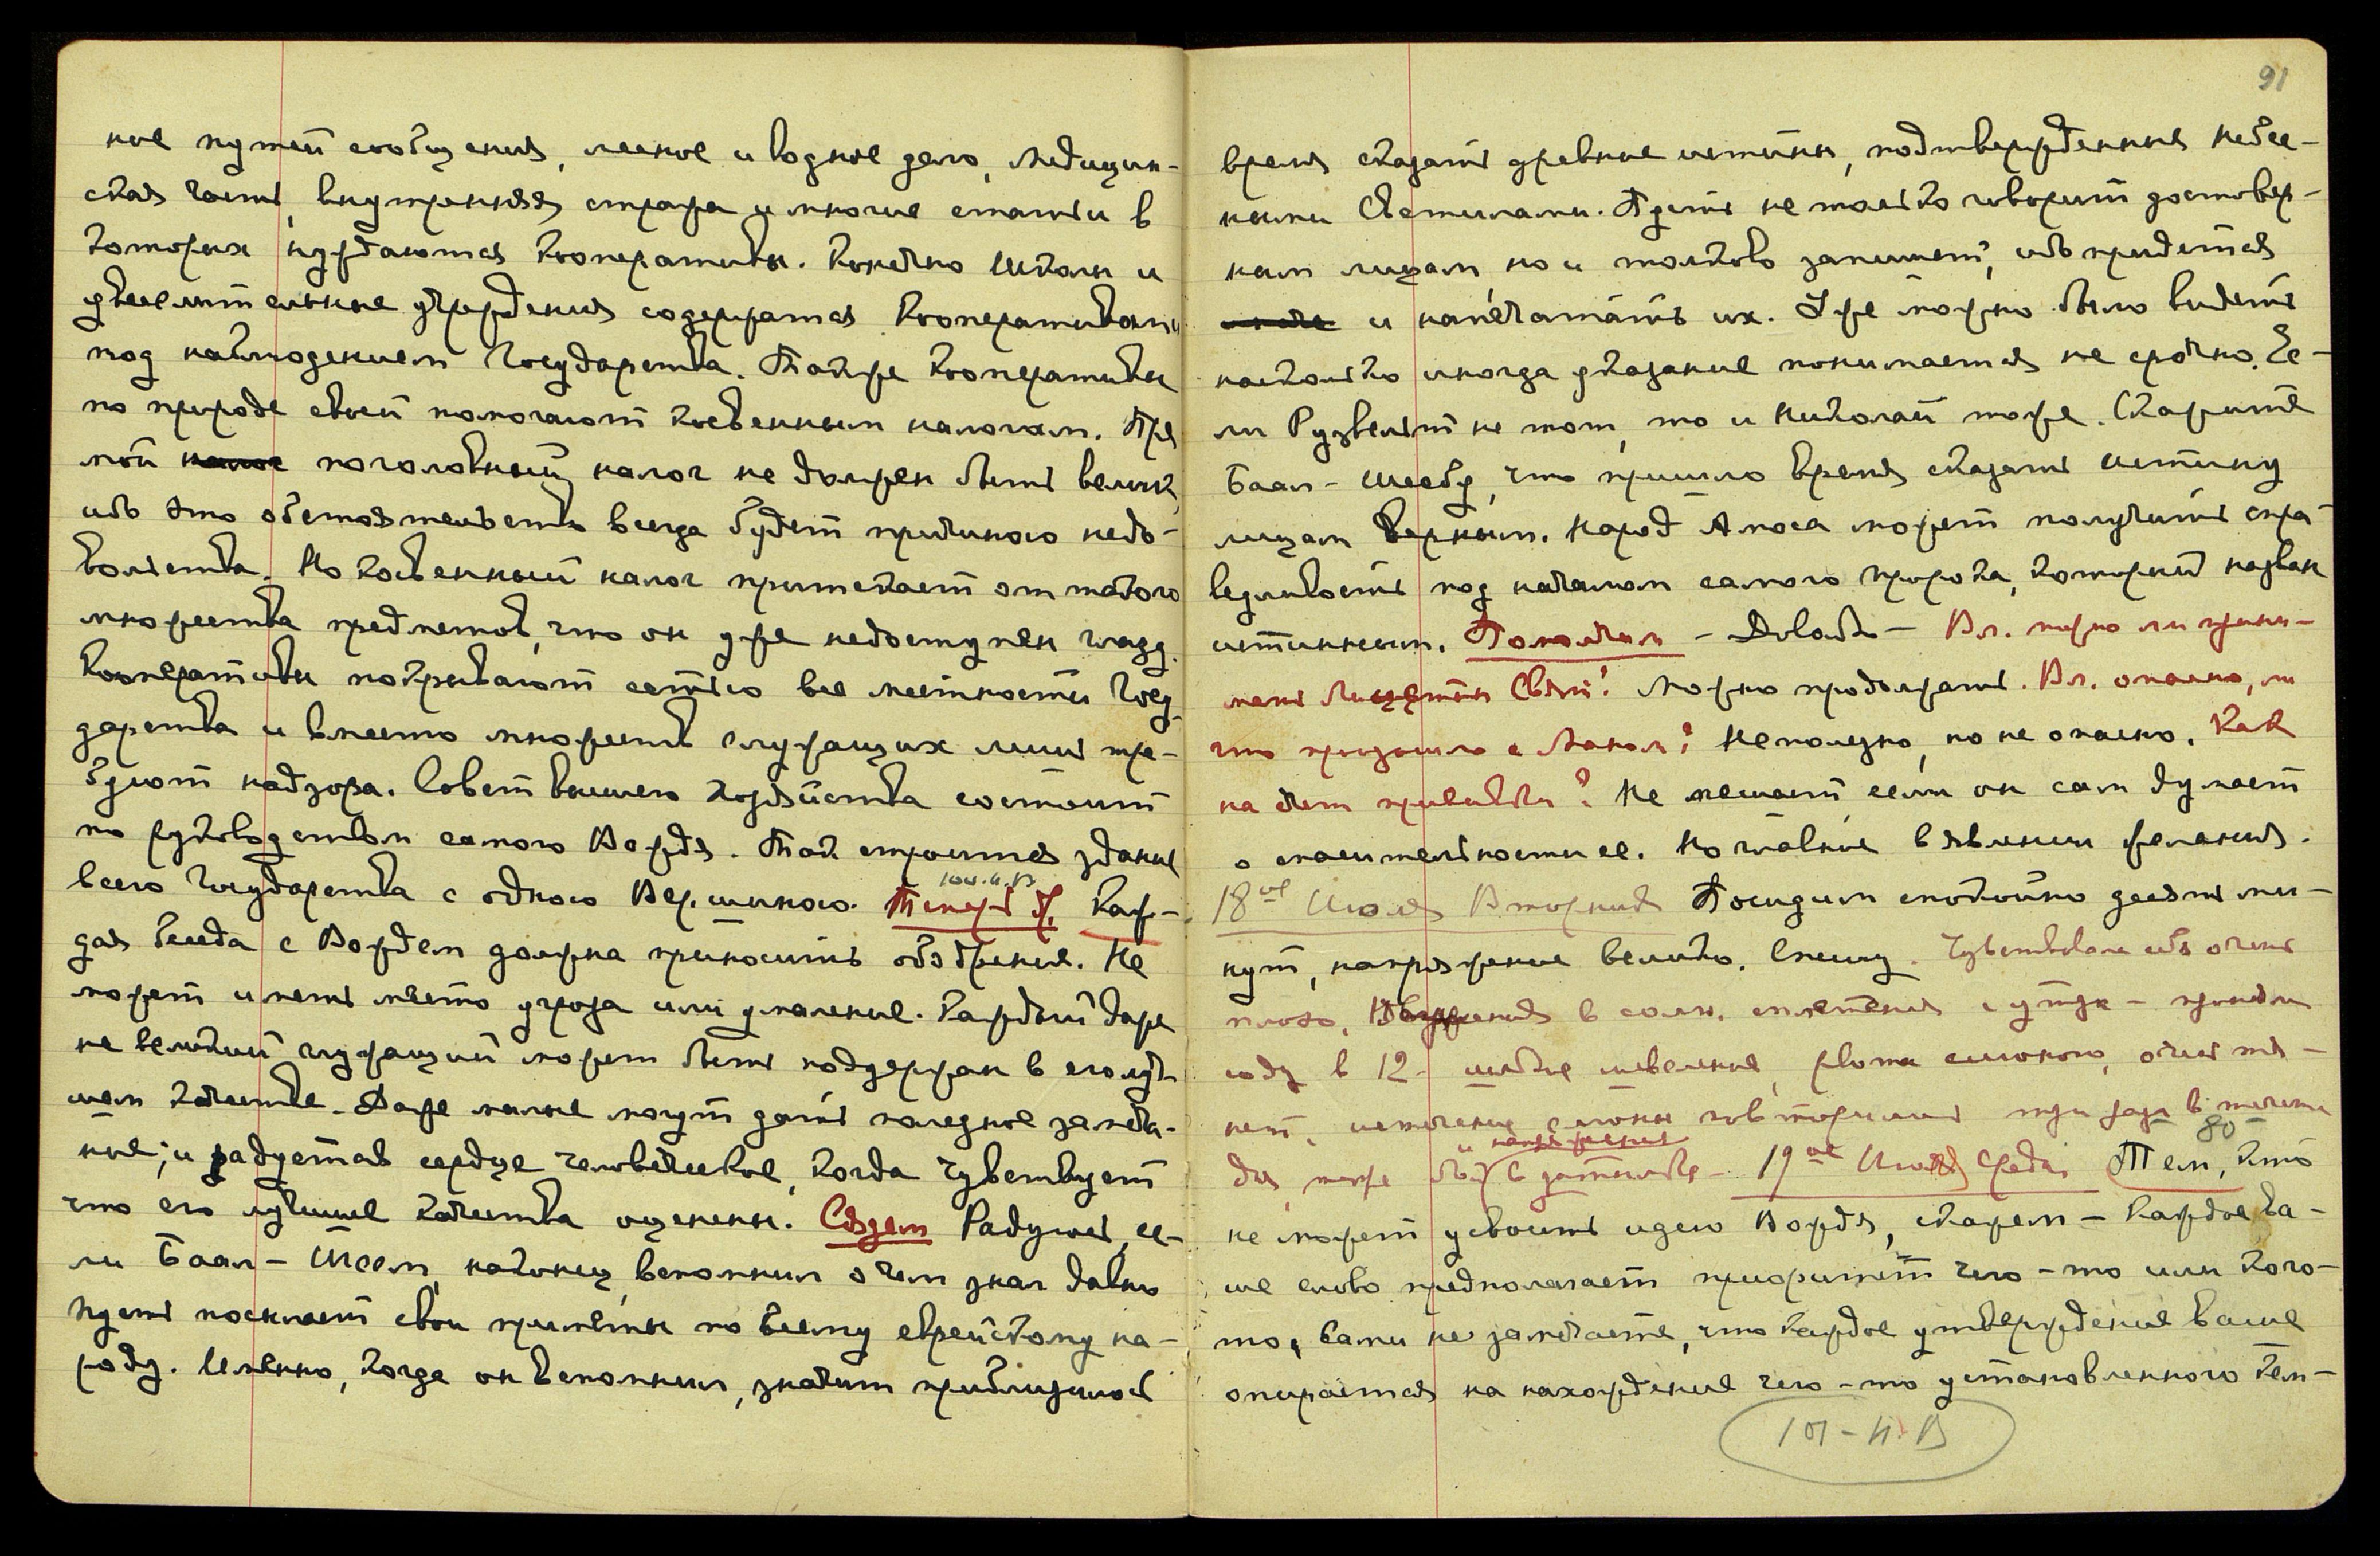 ние путей сообщения, лесное и водное дело, Медицин-
ская часть, внутренняя стража и многие статьи в
которых нуждаются Кооперативы. Конечно Школы и
увеселительные учреждения содержатся Кооперативами
под наблюдением Государства. Также Кооперативы
по природе своей помогают косвенным налогам. Пря
мой налог поголовный налог не должен быть велик,
ибо это обстоятельство всегда будет причиною недо-
вольства. Но косвенный налог притекает от такого
множества предметов, что он уже недоступен глазу.
Кооперативы покрывают сетью все местности Госу-
дарства и вместо множеств служащих лишь тре-
буют надзора. Совет высшего хозяйства состоит
по руководством самого Вождя. Так строится здание
всего Государства с одною Вершиною. Теперь др. Каж-
100.Н.В
дая беседа с Вождем должна приносить ободрение. Не
может иметь место угроза или умаление. Каждый даже
не великий служащий может быть поддержан в его луч
шем качестве. Даже малые могут дать полезное замеча-
ние; и радуется сердце человеческое, когда чувствует
что его лучшие качества оценены. Сязем Радуюсь, ес-
ли Баал-Шем, наконец, вспомнил о чем знал давно
Пусть посылает свои приметы по всему еврейскому на-
роду. Именно, когда он вспомнил, значит приблизилось
91
время сказать древние истины, подтвержденные небес-
ными Светилами. Пусть не только говорит достовер-
ным лицам, но и толково запишет, ибо придется
и напечатать их. Уже можно было видеть
насколько иногда указание понимается не срочно. Ес-
ли Рузвельт не тот, то и Николай тоже. Скажите
Баал-Шему, что пришло время сказать истину
лицам верным. Народ Амоса может получить спра-
ведливость под началом самого пророка, который назван
истинным. Помолчим – Довольно – Вл. можно ли прини-
мать Свят? Можно продолжать. Вл. опасно, ли
что произошло с Маном? Неполезно, но не опасно. Как
на счет прививки? Не мешает, если он сам думает
о спасительности ее. Но главное в явлении желания.
18ое Июля Вторник Посидим спокойно десять ми-
нут, напряжение велико. Спешу. Чувствовала себя очень
плохо. в солн. сплетении с утра – приняла
соду в 12 – шевеление, рвота слюною, очист та-
нет. истечение слюны повторилось три раза в течении
и напряжение
80
дня, тоже в затылке – 19ое Июля Среда. Тем, кто
не может усвоить идею Вождя, скажем – Каждое ва-
ше слово предполагает приоритет чего-то или кого-
то. Сами не замечаете, что каждое утверждение ваше
опирается на нахождение чего-то установленного кем-
101-Н.В